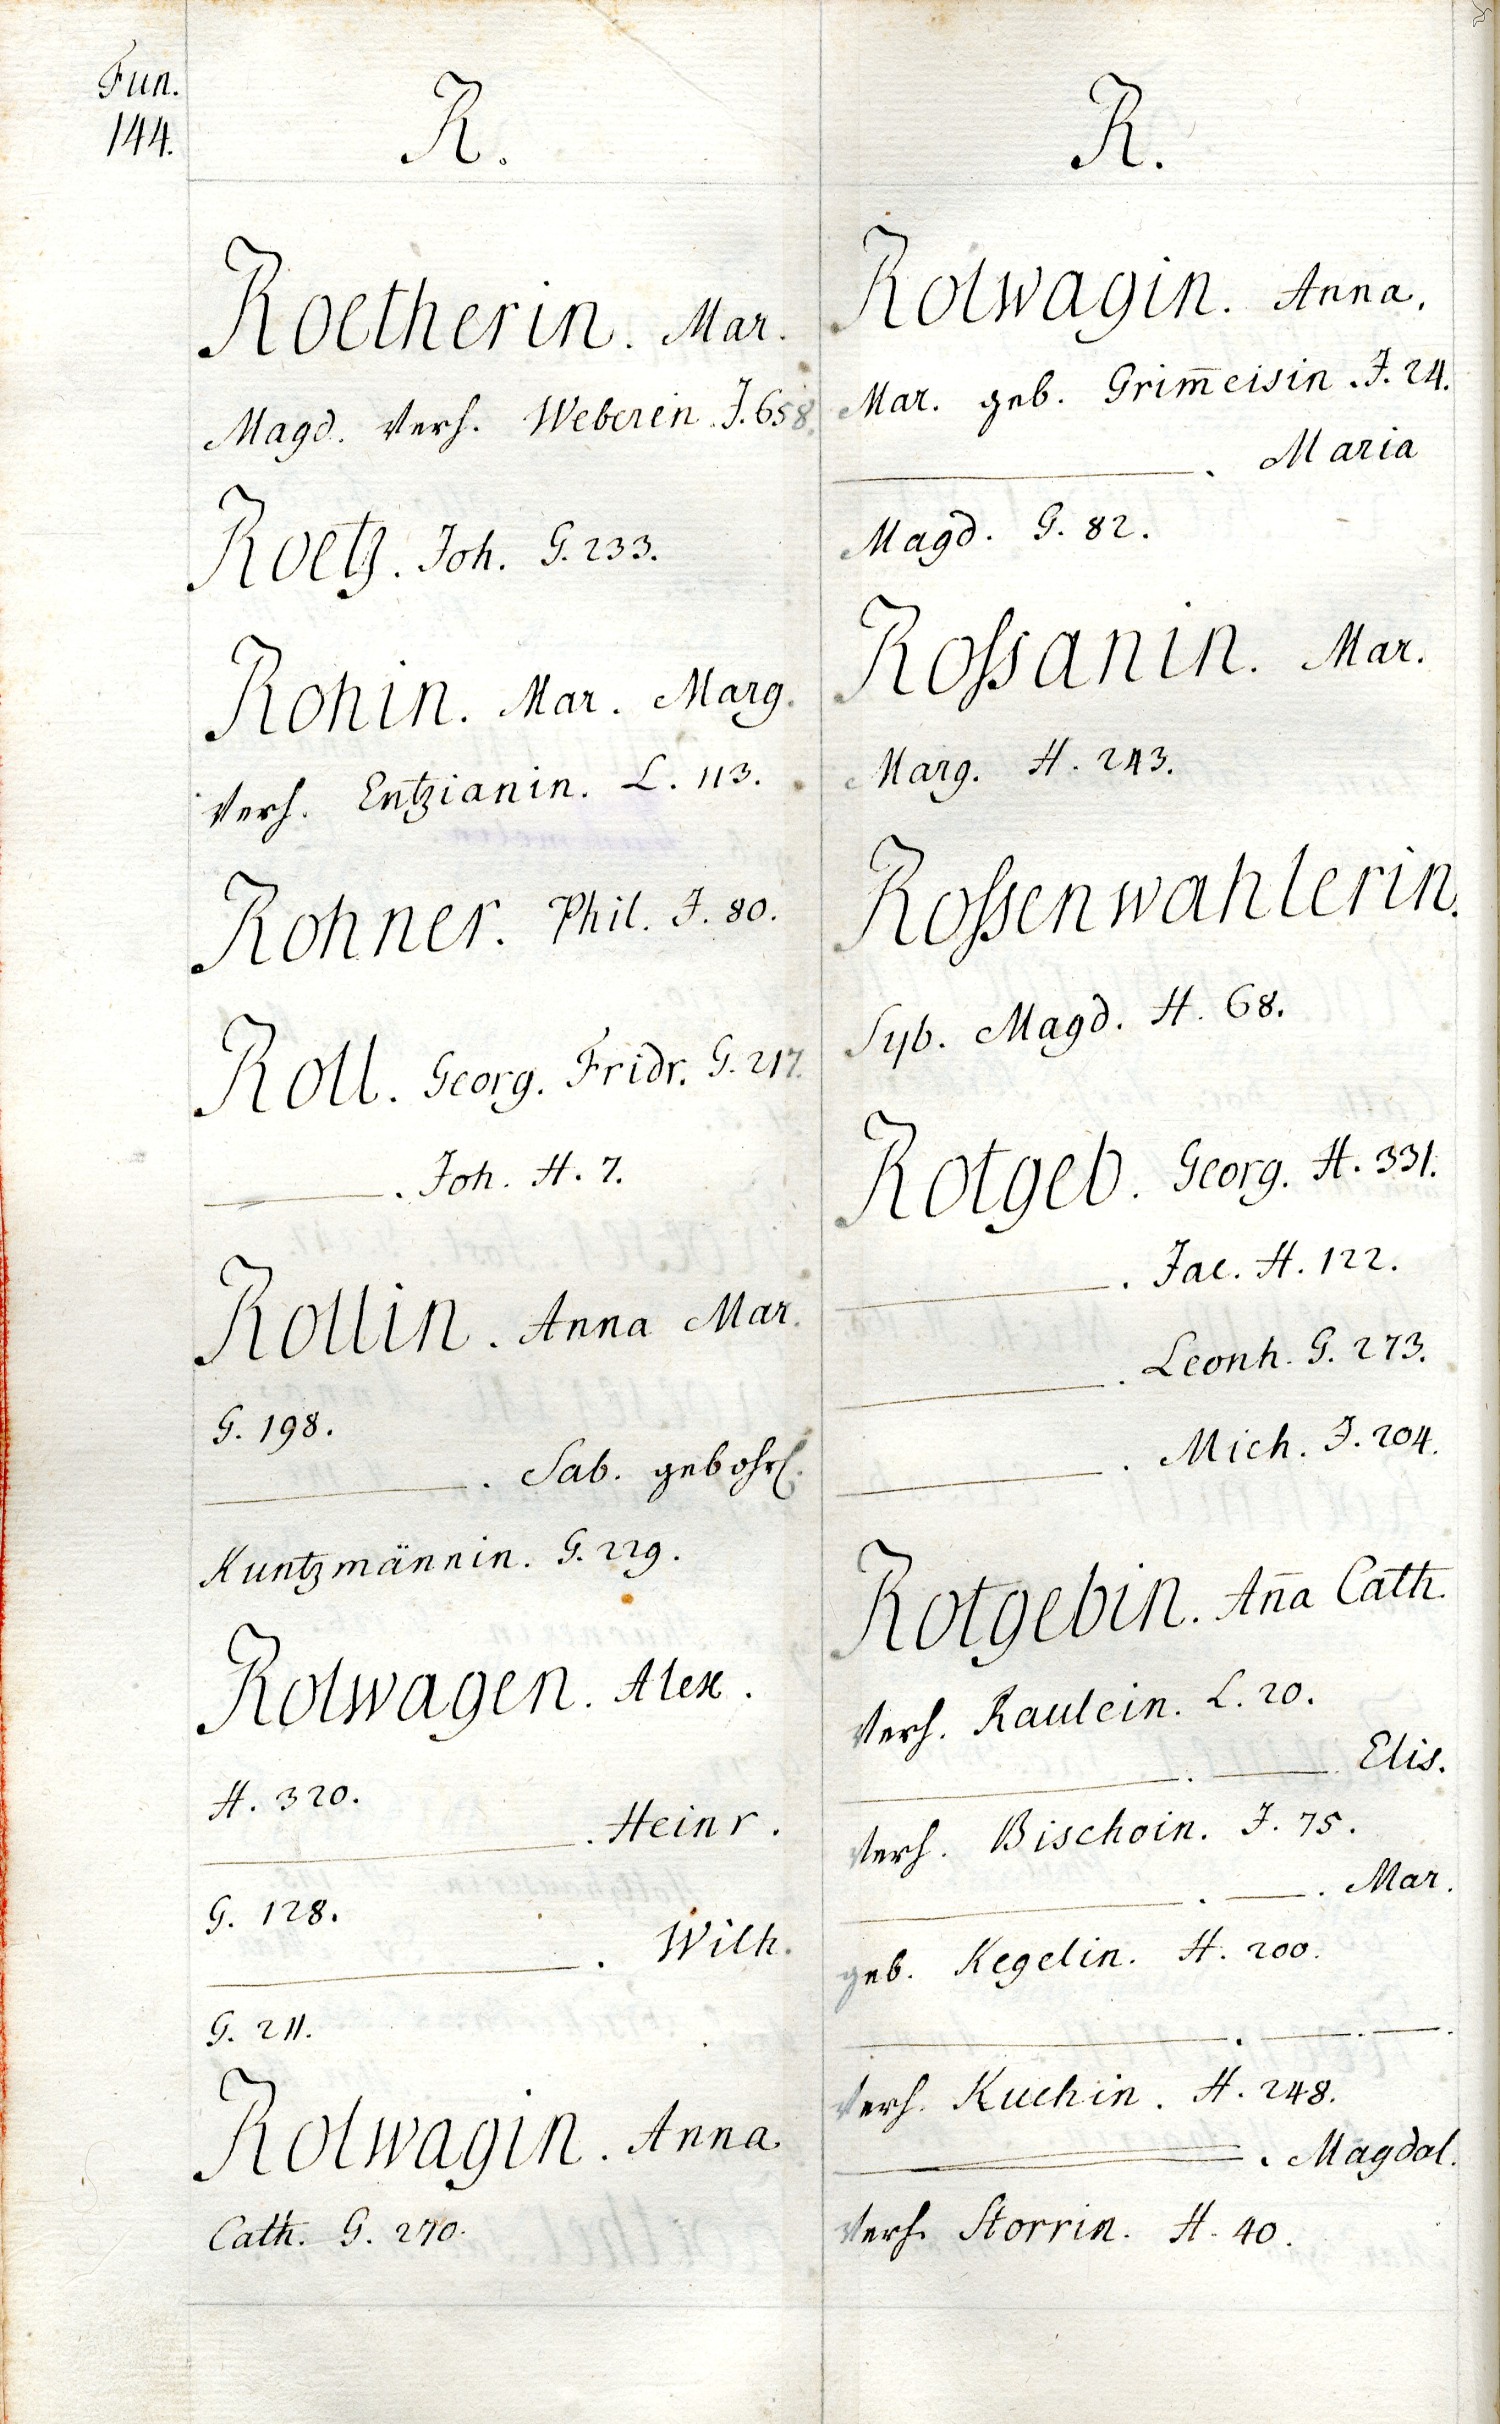 Fun.
144.
R.
Roetherin. Mar.
Magd. verh. Weberin. J. 658.
Roetz. Joh. G. 233.
Rohin. Mar. Marg.
verh. Entzianin. L. 113.
Rohner. Phil. J. 80.
Roll. Georg. Fridr. G. 217.
———. Joh. H. 7.
Rollin. Anna Mar.
G. 198.
———. Sab. gebohrl.
Kuntzmännin. G. 229.
Rolwagen. Alex.
H. 320.
———. Heinr.
G. 128.
———. Wilh.
G. 211.
Rolwagin. Anna
Cath. G. 270.
R.
Rolwagin. Anna.
Mar. geb. Grim̄eisin. J. 24.
———. Maria
Magd. G. 82.
Roſsanin. Mar.
Marg. H. 243.
Roſsenwahlerin.
Syb. Magd. H. 68.
Rotgeb. Georg. H. 331.
———. Jac. H. 122.
———. Leonh. G. 273.
———. Mich. J. 204.
Rotgebin. An̄a Cath.
verh. Raulein. L. 20.
———. ——— Elis.
verh. Bischoin. J. 75.
———. ———. Mar.
geb. Kegelin. H. 200.
———. ———. ———.
verh. Kuchin. H. 248.
———. Magdal.
verh. Storrin. H. 40.